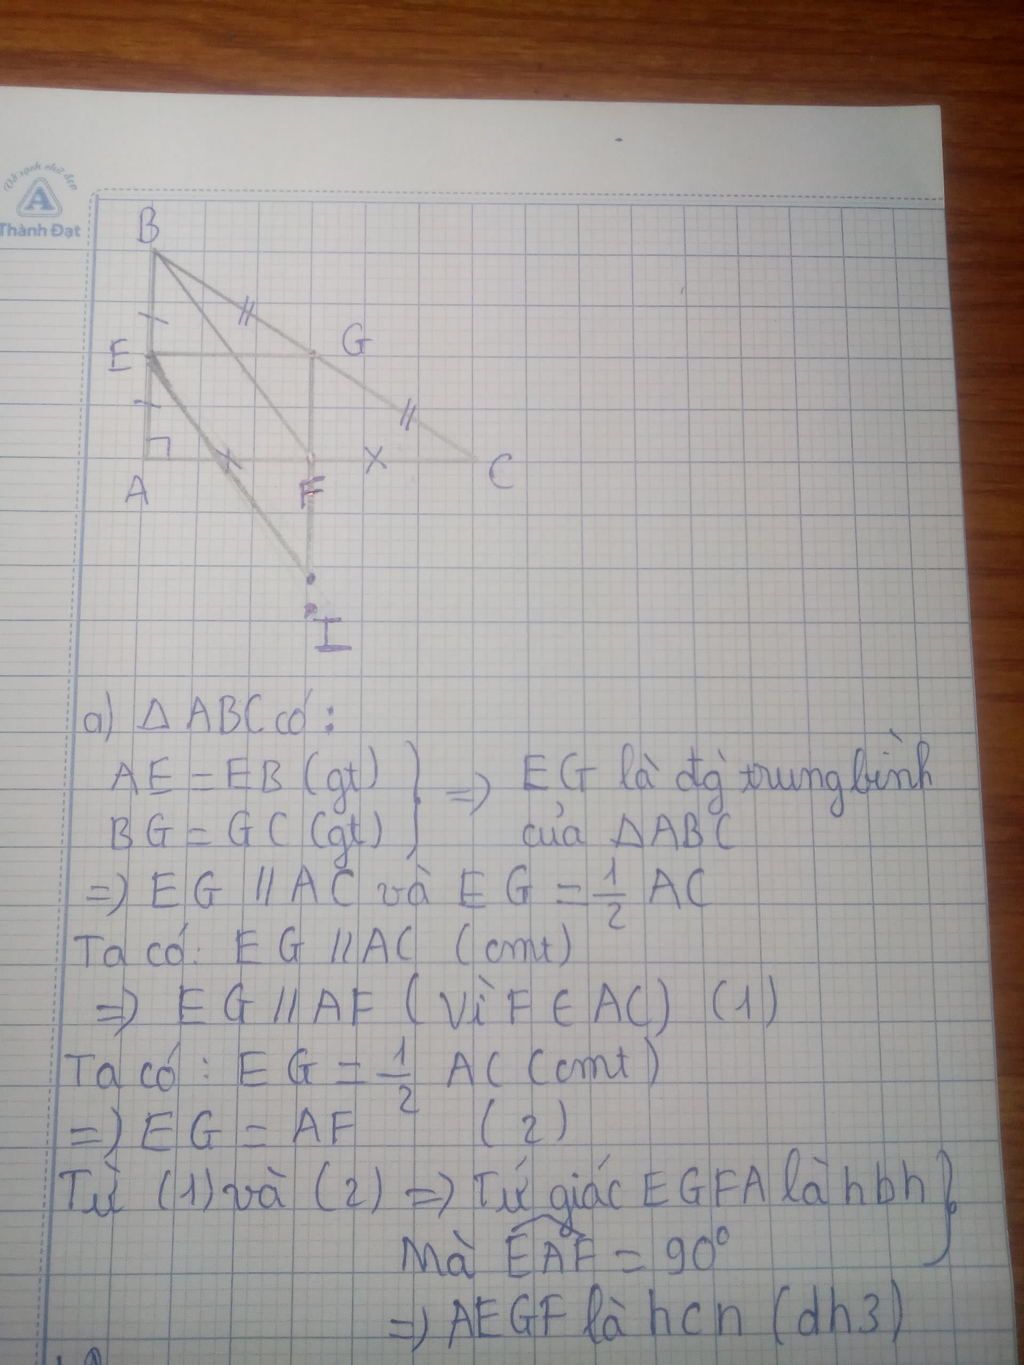 Vở sạch chữ đẹp
A
Thành Đạt
B
E
G
A
F
C
I
a) Δ ABC có:
AE = EB (gt)
BG = GC (gt)
} => EG là đg trung bình
của ΔABC
=> EG // AC và EG = 1/2 AC
Ta có: EG // AC (cmt)
=> EG // AF (Vì F ∈ AC) (1)
Ta có: EG = 1/2 AC (cmt)
=> EG = AF (2)
Từ (1) và (2) => Tứ giác EGFA là hbh }
Mà EAF = 90°
=> AEGF là hcn (dh3)